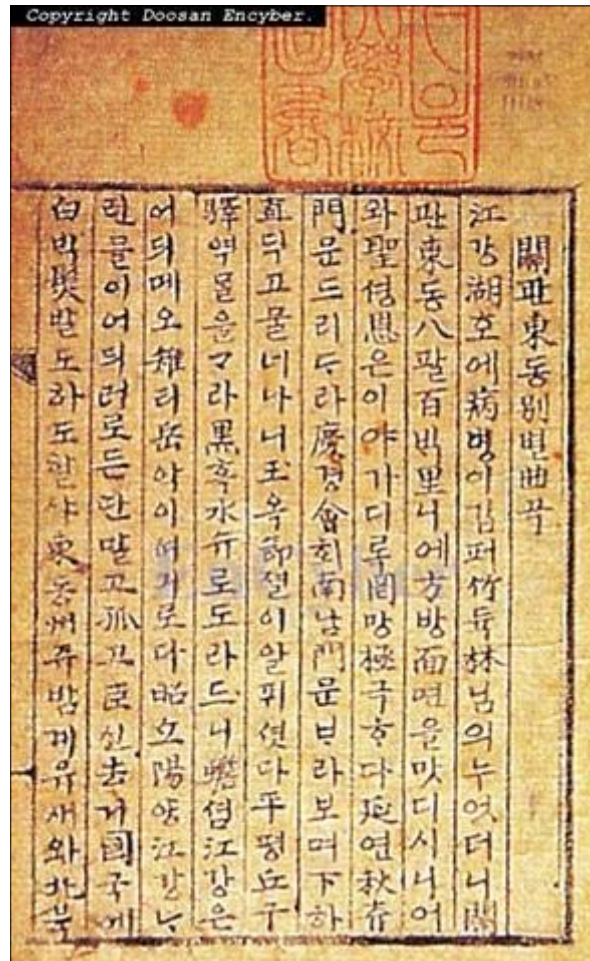 Copyright Doosan Encyber.
서울
大學校
圖書
關관東동別별曲곡
江강湖호에病병이깁퍼竹듁林님의누엇더니關
관東동八팔百빅里니에方방面면을맛디시니어
와聖셩恩은이야가디록罔망極극ᄒᆞ다延연秋츄
門문드리ᄃᆞ라慶경會회南남門문ᄇᆞ라보며下하
直딕고믈너나니玉옥節졀이알ᄑᆡ셧다平평丘구
驛역ᄆᆞᆯ을ᄀᆞ라黑흑水슈로도라드니蟾셤江강은
어듸메오雉티岳악이여긔로다昭쇼陽양江강ᄂᆞ
린믈이어듸러로든단말고孤고臣신去거國국에
白빅髮발도하도할샤東동州쥬밤계유새와北븍